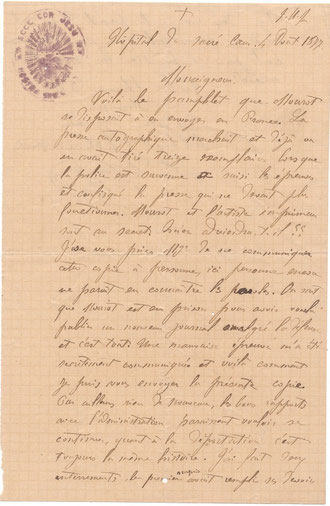 ECCE COR JESU
+
J.M.J
Hôpital du sacré Coeur 4 Août 1877
Monseigneur
Voilà le pamphlet que Mourot
se disposait à en envoyer en France. La
presse autographique marchait et déjà on
en avait tiré treize exemplaires lorsque
la police est survenue et saisi les épreuves
et confisqué la presse qui ne devait plus
fonctionner. Mourot et l'artiste imprimeur
sont au secret
J'ose vous prier Mgr de ne communiquer
cette copie à personne, ici personne encore
ne parait en connaitre les On sait
que Mourot est en prison pour avoir voulu
publier un nouveau journal malgré la défense
et c'est tout. Une mauvaise épreuve m'a été
secrètement communiquée et voilà comment
je puis vous envoyer la présente copie.
Par ailleurs rien de nouveau, les bons rapports
avec l'administration paraissent vouloir se
continuer, quant à la Déportation c'est
toujours la même histoire. J'ai fait
enterrements les avaient rempli